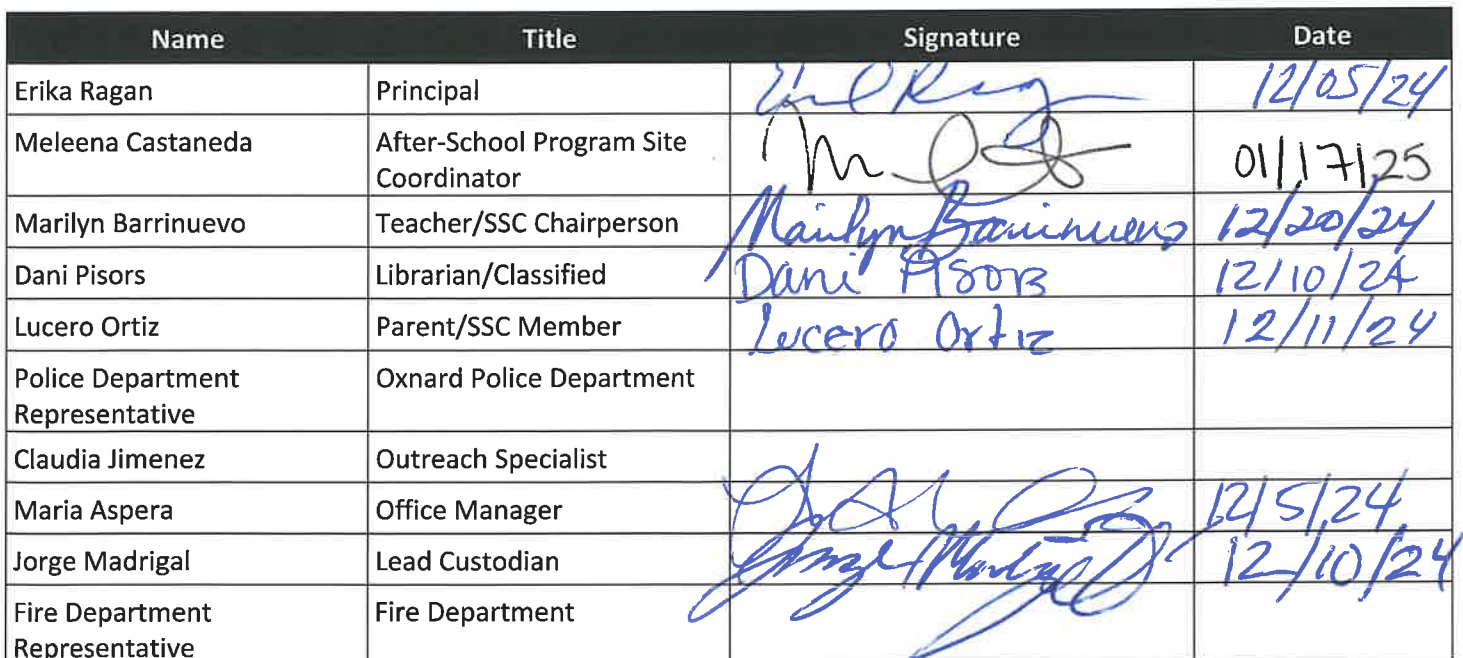 Name Title Signature Date
Erika Ragan Principal 12/05/24
Meleena Castaneda After-School Program Site 01/17/25
Coordinator
Marilyn Barrinuevo Teacher/SSC Chairperson Marilyn Barrinuevo 12/20/24
Dani Pisors Librarian/Classified Dani Pisors 12/10/24
Lucero Ortiz Parent/SSC Member Lucero Ortiz 12/11/24
Police Department Oxnard Police Department
Representative
Claudia Jimenez Outreach Specialist
Maria Aspera Office Manager 12/5/24
Jorge Madrigal Lead Custodian 12/10/24
Fire Department Fire Department
Representative